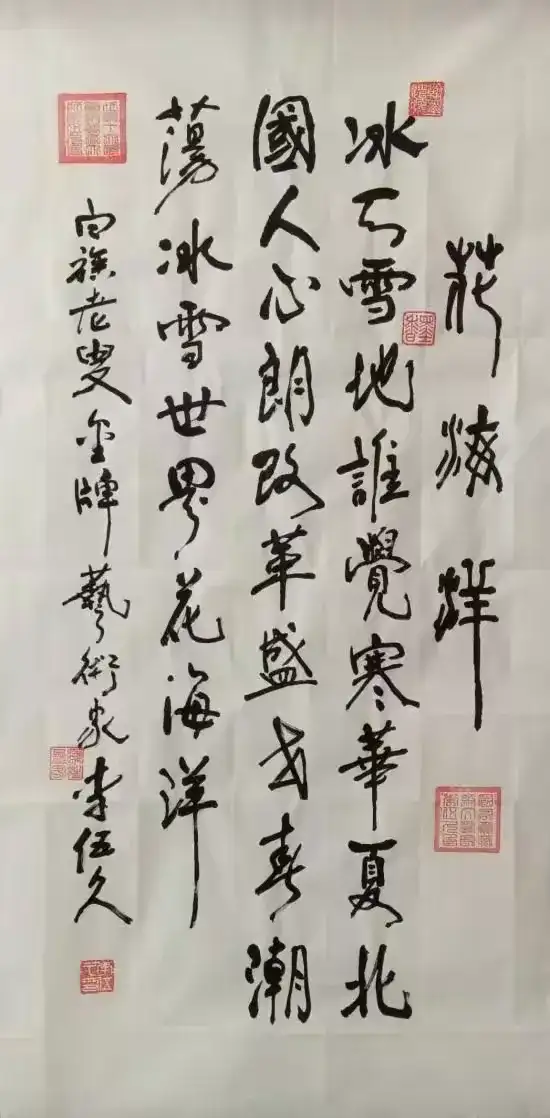 花海洋
冰天雪地誰覺寒華夏北
國人心朗改革盛世春潮
蕩冰雪世界花海洋
白族老叟金牌藝術家李伍久